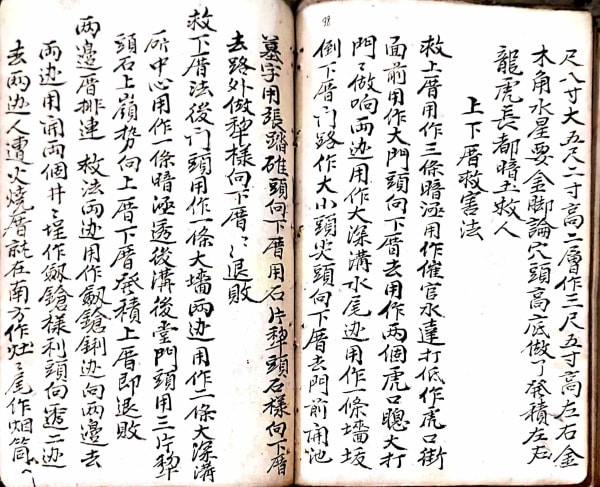 尺八寸大五尺二寸高二層作三尺五寸高左右金
木角水星要金脚論穴頭高底做了發積左右
龍虎長都暗主救人
上下厝救害法
救上厝用作三條暗涵用作催官水達打低作虎口街
面前用作大門頭向下厝去用作兩個虎口聰大打
門〻做响兩边用大深溝水尾边用作一條墻坂
倒下厝门路作大小頭尖頭向下厝去門前開池
墓字用張踏碓頭向下厝用石片犂頭石樣向下厝
去路外做犂樣向下厝〻退敗
救下厝法後门頭用作一條大墻兩边用作二條大深溝
所中心用作一條暗涵透後溝後堂門頭用三片犂
頭石上嶺势向上厝下厝發積上厝即退敗
兩邊厝排連 救法兩边用作劔鎗鋓边向兩邊去
兩边用開兩個井〻埕作劔鎗樣利頭向透二边
去兩边人遭火燒厝就在南方作灶〻尾作烟筒